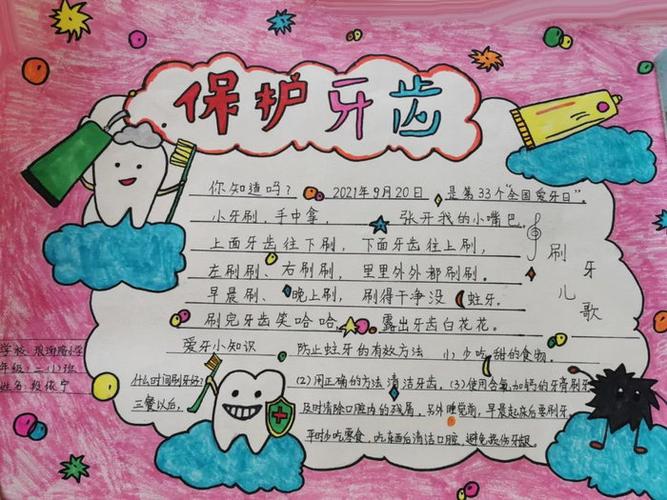 保护牙齿
你知道吗？ 2021年9月20日 是第33个“全国爱牙日”。
小牙刷，手中拿， 张开我的小嘴巴。
上面牙齿往下刷，下面牙齿往上刷，
左刷刷、右刷刷，里里外外都刷刷。
早晨刷、晚上刷，刷得干净没蛀牙。
刷完牙齿笑哈哈，露出牙齿白花花。
刷牙儿歌
爱牙小知识 防止蛀牙的有效方法 (1) 少吃甜的食物。
什么时间刷牙好？ (2) 用正确的方法清洁牙齿。(3) 使用含氟加钙的牙膏刷牙
三餐以后， 及时清除口腔内的残屑，另外睡觉前，早晨起床后要刷牙
平时少吃零食，吃东西后清洁口腔，避免
学校：
年级：二(1)班
姓名：段依宁